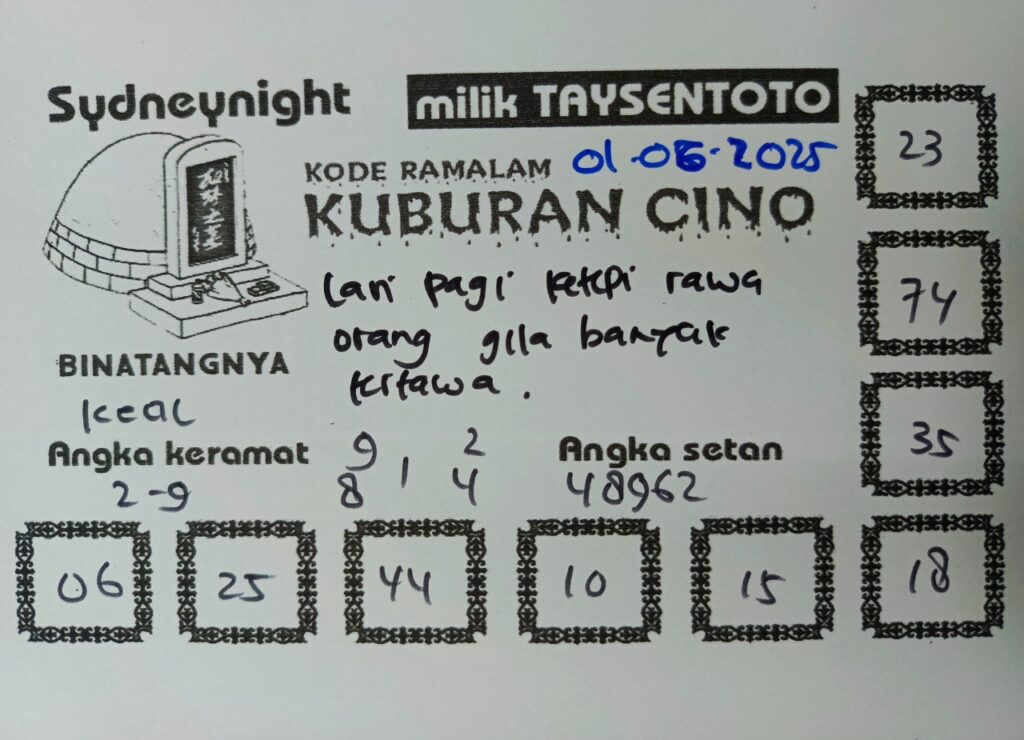 Sydneynight
milik TAYSENTOTO
KODE RAMALAM 01-06-2025
KUBURAN CINO
Lari pagi ketepi rawa
orang gila banyak
tertawa.
BINATANGNYA
Angka keramat
2-9
9 2
8 1 4
Angka setan
48962
23
74
35
06 25 44 10 15 18